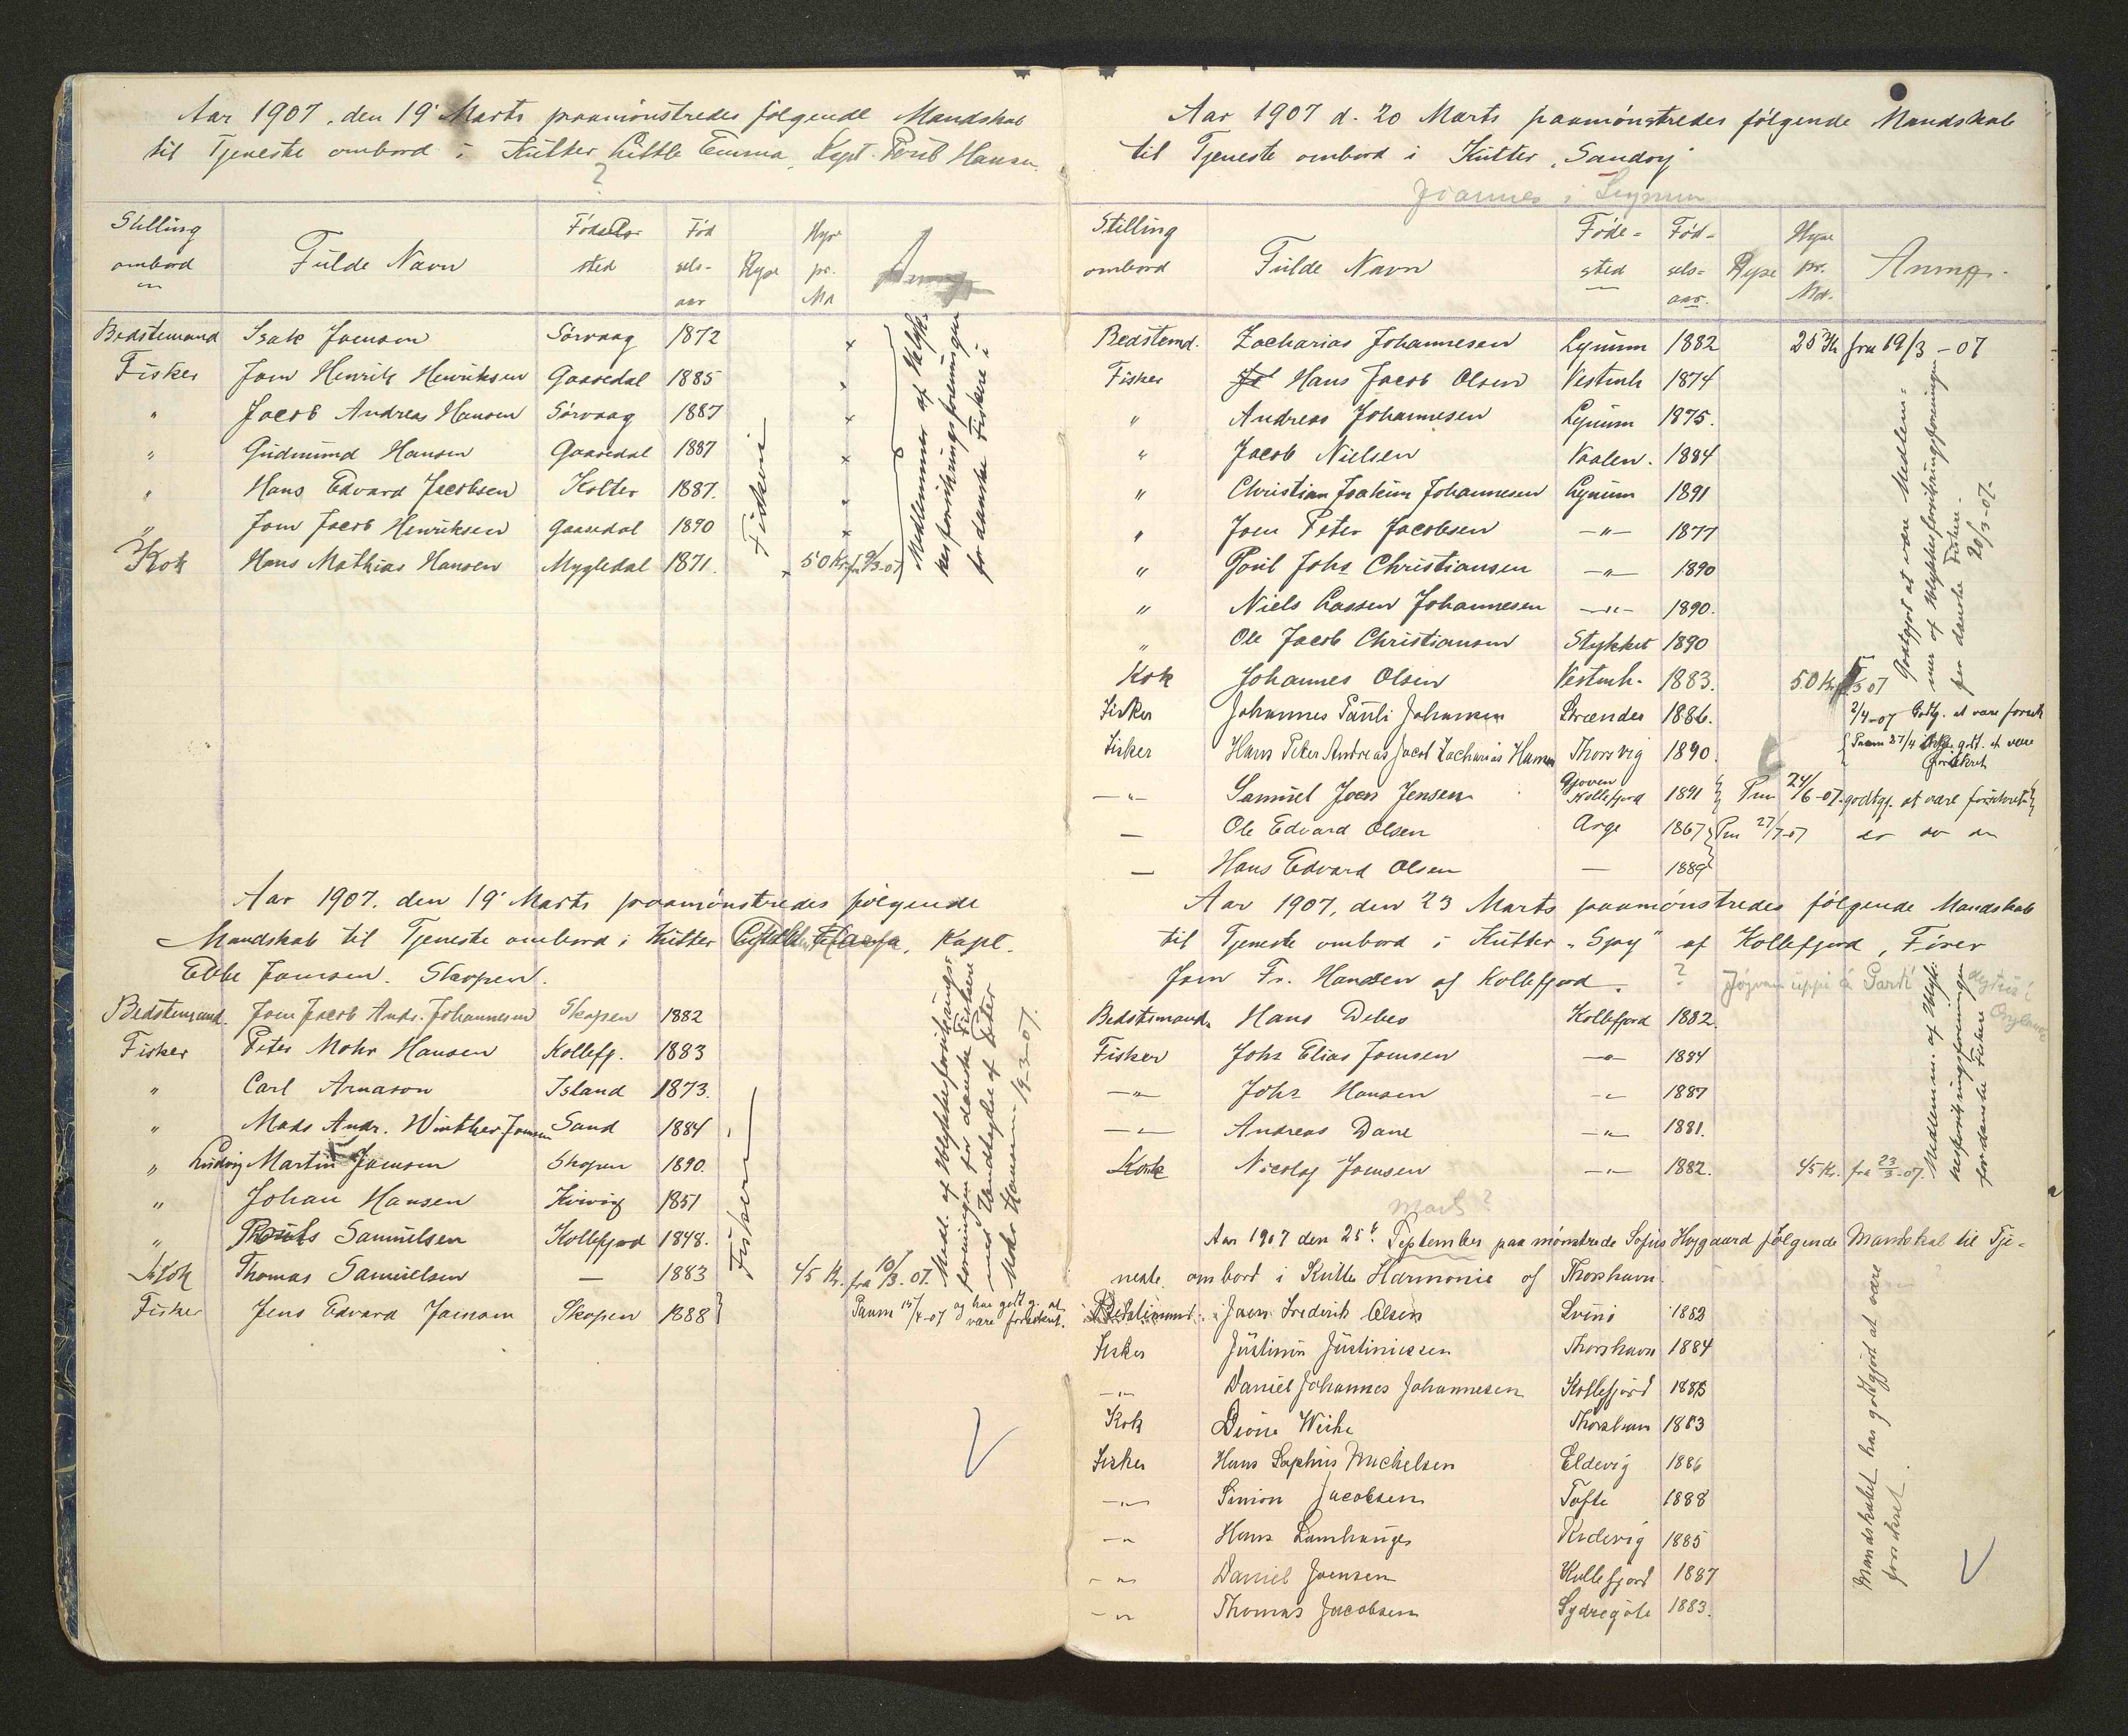 Aar 1907, den 19' Marts paamönstredes følgende Mandskab
til Tjeneste ombord i Kutter Little Emma, Kapt. Poul Hansen
?
Stilling ombord | Fulde Navn | Føde sted | Fødsels-aar | Hyre | Hyre pr. Md
Bedstemand Isak Joensen Sörvaag 1872 x
Fisker Joen Henrik Henriksen Gaasedal 1885 x
" Jacob Andreas Hansen Sörvaag 1887 x
" Gudmund Hansen Gaasedal 1887 x
" Hans Edvard Jacobsen Kolter 1887. x
" Joen Jacob Henriksen Gaasedal 1890 x
Kok Hans Mathias Hansen Mygledal 1871. x 50 Kr. fra 9/3-07
Fiskeri
Medlemmer af Ulykk-
kesforsikringsforeningen
for danske Fiskere i
Aar 1907. den 19' Marts paamönstredes følgende
Mandskab til Tjeneste ombord i Kutter Kapt.
Ebbe Joensen. Skopen.
Bedstemand. Joen Jacob Andr. Johannesen Skopen 1882
Fisker Peter Mohr Hansen Kollefj. 1883
" Carl Arnason Island 1873.
" Mads Andr. Winther Joensen Sand 1884
" Ludvig Martin Joensen Skopen 1890.
" Johan Hansen Kvivig 1851
" Samuelsen Kollefjord 1848.
Kok Thomas Samuelsen — 1883 45 Kr. fra 10/3-07.
Fisker Jens Edvard Joensen Skopen 1888 } Paam 15/4-07 og har godtg. at være forsikret.
Fiskeri
Medl. af Ulykkesforsikrings-
foreningen for danske Fiskere
med Undtagelse af Peter
Mohr Hansen 19-3-07.
Aar 1907 d. 20 Marts paamönstredes følgende Mandskab
til Tjeneste ombord i Kutter "Sandoy"
Jóannes i
Stilling ombord | Fulde Navn | Føde-sted | Fød-sels-aar. | Hyre | Hyre pr. Md. | Anmg.
Bedstemd. Zacharias Johannesen Lynum 1882 25 Kr fra 19/3-07
Fisker Hans Jacob Olsen Vestmh 1874
" Andreas Johannesen Lynum 1875.
" Jacob Nielsen Vaalen. 1884
" Christian Joakim Johannesen Lynum 1891
" Joen Peter Jacobsen —"— 1877
" Poul Johs Christiansen —"— 1890
" Niels Lassen Johannesen —"— 1890.
" Ole Jacob Christiansen Stykket 1890
Kok Johannes Olsen Vestmh. 1883. 50 Kr.
Fisker Johannes Pauli Johannesen Strænder 1886. 2/4-07 Godtg. at være forsik
Fisker Hans Peter Andreas Jacob Zacharias Hansen Thorsvig 1890. { Paam 27/4 godt. at være forsikret
—"— Samuel Joen Jensen Gjoven Kollefjord 1891 } Pm 24/6-07. godtgj. at være forsikret }
— Ole Edvard Olsen Arge 1867 } Pm 27/7-07 do do do
— Hans Edvard Olsen — 1889 }
Godtgjort at være Medlem-
mer af Ulykkesforsikringsforeningen
for danske Fiskere.
20/3-07.
Aar 1907, den 23 Marts paamönstredes følgende Mandskab
til Tjeneste ombord i Kutter "Spey" af Kollefjord, Fører
Joen Fr. Hansen af Kollefjord. ? Jógvan uppi á Garði
Bedstemand. Hans Debes Kollefjord 1882.
Fisker Johs Elias Joensen —"— 1884
—"— Johs Hansen —"— 1887
—"— Andreas Dane —"— 1881.
Kok Nicolaj Joensen —"— 1882. 45 Kr. fra 23/3-07.
Medlemm. af Ulyk-
kesforsikringsforeningen
for danske Fiskere
Marts?
Aar 1907 den 25' September paamönstrede Sofus Hoygaard følgende Mandskab til Tje-
neste ombord i Kutter Harmonie af Thorshavn.
Bestemand Joen Frederik Olsen Svinö 1882
Fisker Justinus Justiniussen Thorshavn 1884
—"— Daniel Johannes Johannesen Kollefjord 1885
Kok Dione Weihe Thorshavn 1883
Fisker Hans Sophus Michelsen Eldevig 1886
—"— Simon Jacobsen Tofte 1888
—"— Hans Lamhauge Andevig 1885
—"— Daniel Joensen Kollefjord 1887
—"— Thomas Jacobsen Sydregöte 1883.
Mandskabet har godtgjort at være
forsikret.